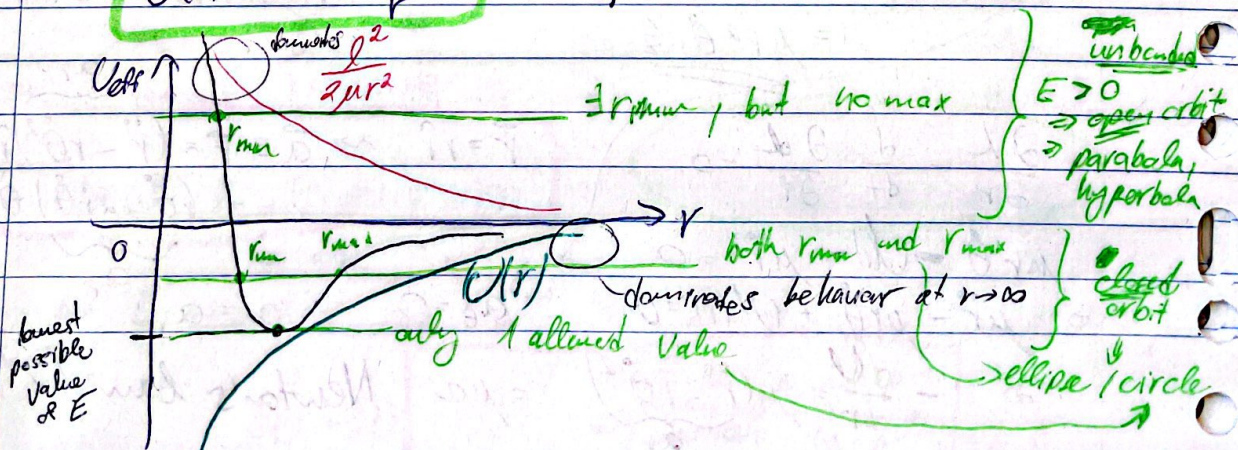 dominates
l²
2μr²
Ueff
rmin
∃ rmin, but no max
unbounded
E > 0
⇒ open orbit
⇒ parabola,
hyperbola
r
0
rmin
rmax
both rmin and rmax
U(r)
dominates behavior at r→∞
closed
orbit
lowest
possible
value
of E
only 1 allowed value
→ ellipse / circle